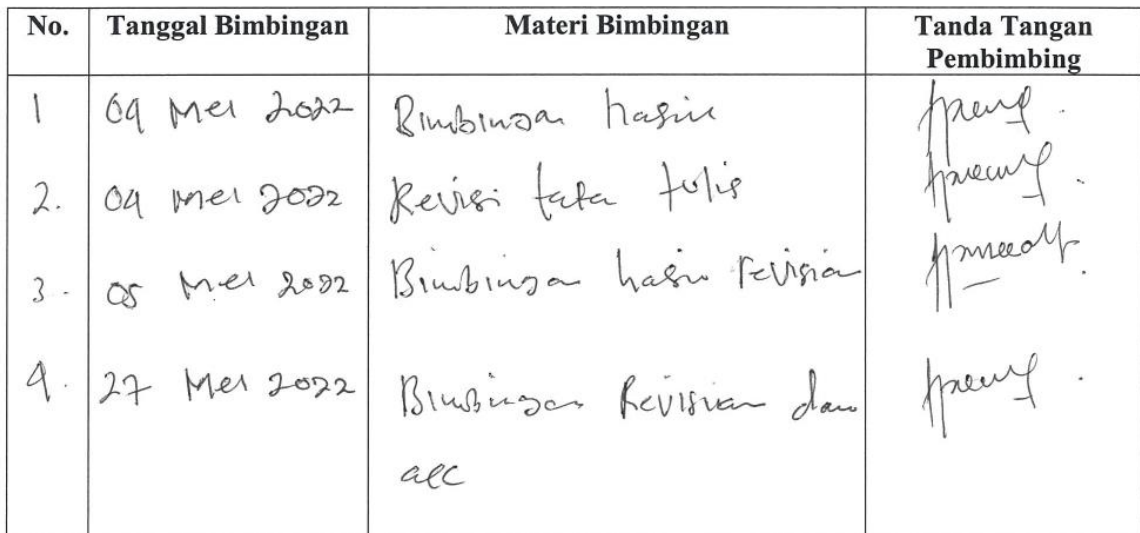 No. Tanggal Bimbingan Materi Bimbingan Tanda Tangan Pembimbing
1 04 Mei 2022 Bimbingan hasil
2. 04 Mei 2022 Revisi tata tulis
3. 05 Mei 2022 Bimbingan hasil revisian
4. 27 Mei 2022 Bimbingan Revisian dan
acc